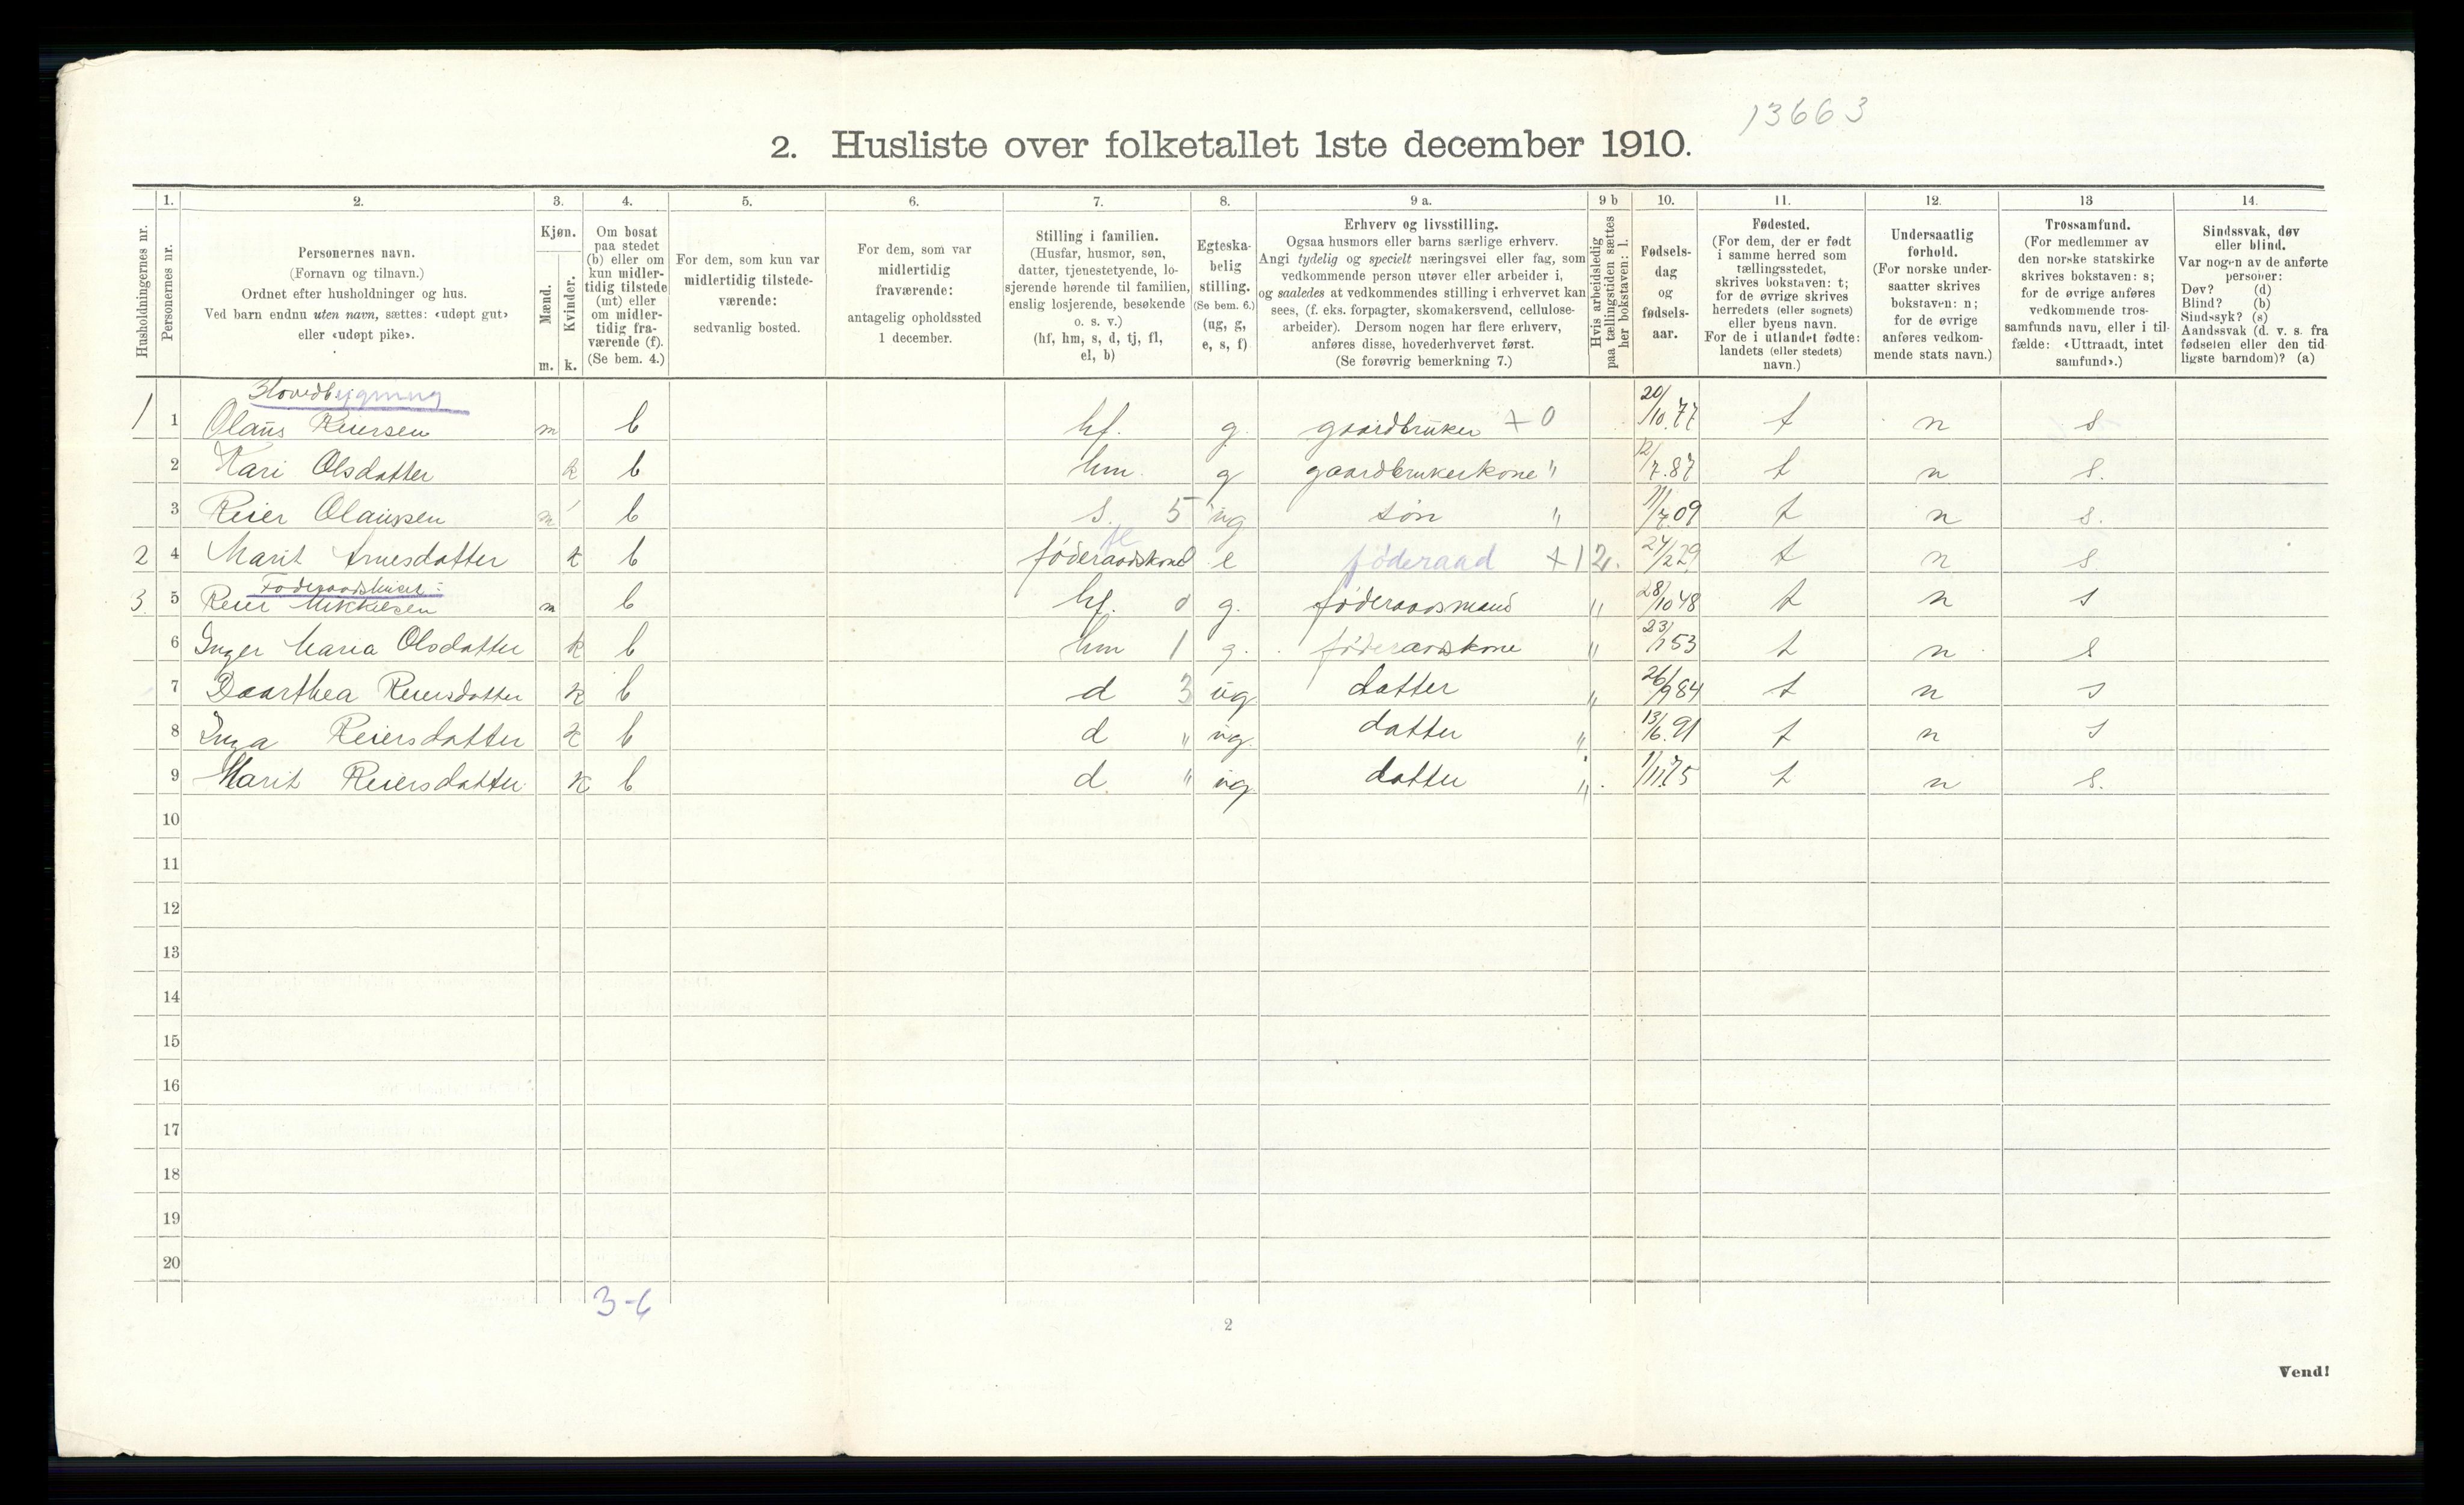 13663
2. Husliste over folketallet 1ste december 1910.
Husholdningernes nr.
1.
Personernes nr.
2.
Personernes navn.
(Fornavn og tilnavn.)
Ordnet efter husholdninger og hus.
Ved barn endnu uten navn, sættes: «udøpt gut»
eller «udøpt pike».
3.
Kjøn.
Mænd.
Kvinder.
m. k.
4.
Om bosat
paa stedet
(b) eller om
kun midler-
tidig tilstede
(mt) eller
om midler-
tidig fra-
værende (f).
(Se bem. 4.)
5.
For dem, som kun var
midlertidig tilstede-
værende:
sedvanlig bosted.
6.
For dem, som var
midlertidig
fraværende:
antagelig opholdssted
1 december.
7.
Stilling i familien.
(Husfar, husmor, søn,
datter, tjenestetyende, lo-
sjerende hørende til familien,
enslig losjerende, besøkende
o. s. v.)
(hf, hm, s, d, tj, fl,
el, b)
8.
Egteska-
belig
stilling.
(Se bem. 6.)
(ug, g,
e, s, f)
9 a.
Erhverv og livsstilling.
Ogsaa husmors eller barns særlige erhverv.
Angi tydelig og specielt næringsvei eller fag, som
vedkommende person utøver eller arbeider i,
og saaledes at vedkommendes stilling i erhvervet kan
sees, (f. eks. forpagter, skomakersvend, cellulose-
arbeider). Dersom nogen har flere erhverv,
anføres disse, hovederhvervet først.
(Se forøvrig bemerkning 7.)
9 b
Hvis arbeidsledig
paa tællingstiden sættes
her bokstaven: l.
10.
Fødsels-
dag
og
fødsels-
aar.
11.
Fødested.
(For dem, der er født
i samme herred som
tællingsstedet,
skrives bokstaven: t;
for de øvrige skrives
herredets (eller sognets)
eller byens navn.
For de i utlandet fødte:
landets (eller stedets)
navn.)
12.
Undersaatlig
forhold.
(For norske under-
saatter skrives
bokstaven: n;
for de øvrige
anføres vedkom-
mende stats navn.)
13
Trossamfund.
(For medlemmer av
den norske statskirke
skrives bokstaven: s;
for de øvrige anføres
vedkommende tros-
samfunds navn, eller i til-
fælde: «Uttraadt, intet
samfund».)
14.
Sindssvak, døv
eller blind.
Var nogen av de anførte
personer:
Døv? (d)
Blind? (b)
Sindssyk? (s)
Aandssvak (d. v. s. fra
fødselen eller den tid-
ligste barndom)? (a)
Hovedbygning
1 1 Olaus Reiersen m b hf. g. gaardbruker + 0 20/10.77 t n s
2 Kari Olsdatter k b hm. g gaardbrukerkone " 12/7.87 t n s.
3 Reier Olaussen m b s. 5 ug søn " 11/7.09 t n s.
2 4 Marit Arnesdatter k b føderaadskone fl e føderaad +12. 24/2 29 t n s.
Føderaadshuset:
3. 5 Reier Mikkelsen m b hf. 0 g. føderaadsmand " 28/10 48 t n s
6 Inger Maria Olsdatter k b hm 1 g. føderaadskone " 23/1 53 t n s
7 Daarthea Reiersdatter k b d 3 ug datter " 26/9 84 t n s
8 Inga Reiersdatter k b d " ug. datter " 13/6.91 t n s
9 Marit Reiersdatter k b d. " ug datter " 1/11.75 t n s.
10
11
12
13
14
15
16
17
18
19
20
3-6
2
Vend!